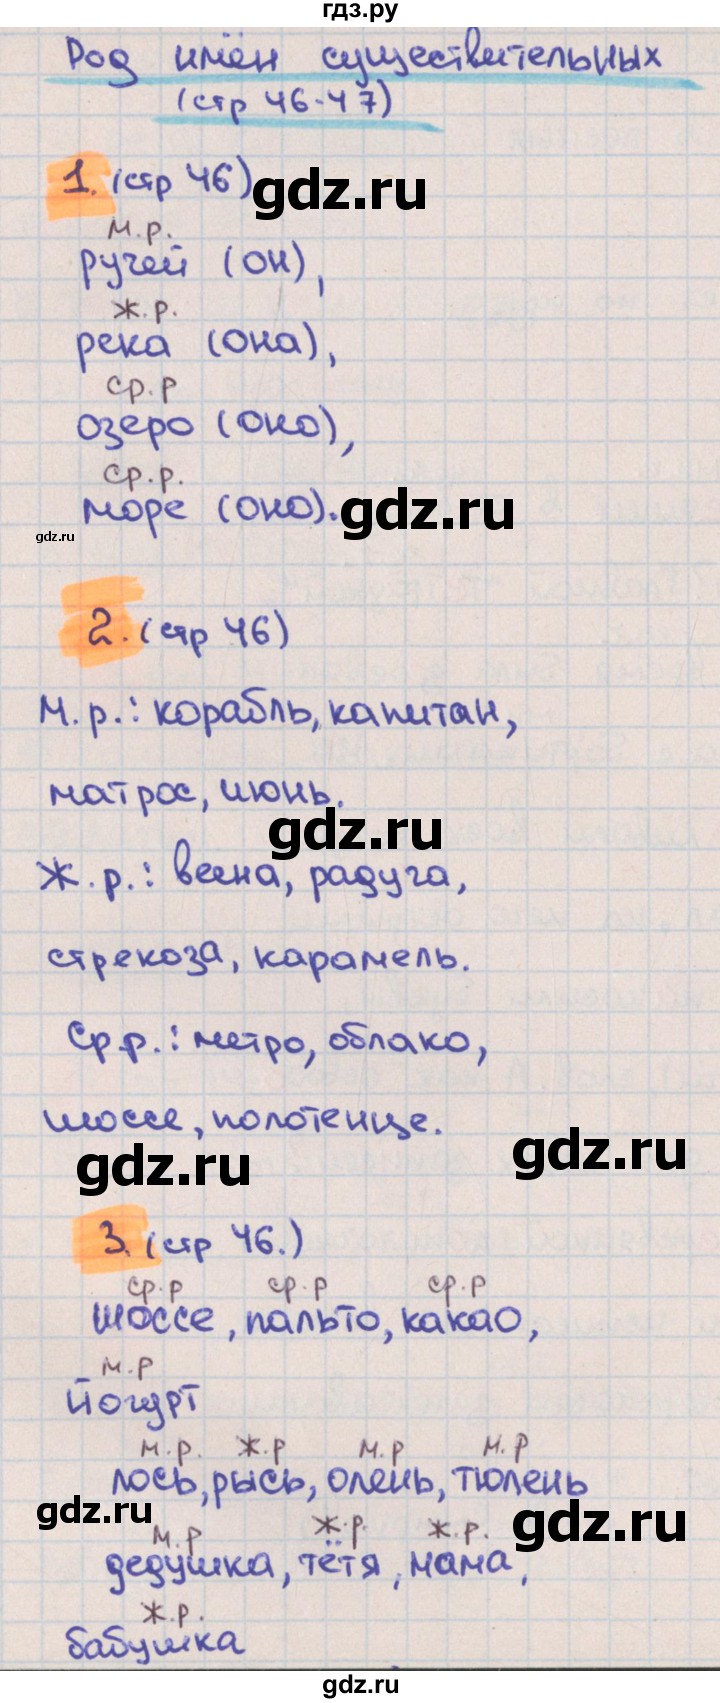 гдз.ру
Род имён существительных
(стр 46-47)
1. (стр 46)
gdz.ru
м.р.
ручей (он),
ж.р.
река (она),
ср.р
озеро (оно),
ср.р.
море (оно).
gdz.ru
gdz.ru
2. (стр 46)
М.р.: корабль, капитан,
матрос, июнь.
gdz.ru
Ж.р.: весна, радуга,
стрекоза, карамель.
Ср.р.: метро, облако,
шоссе, полотенце.
gdz.ru
gdz.ru
3. (стр 46.)
ср.р ср.р ср.р
шоссе, пальто, какао,
м.р
йогурт
м.р. ж.р м.р м.р
лось, рысь, олень, тюлень
gdz.ru
gdz.ru
м.р ж.р. ж.р.
дедушка, тётя, мама,
ж.р.
бабушка
gdz.ru